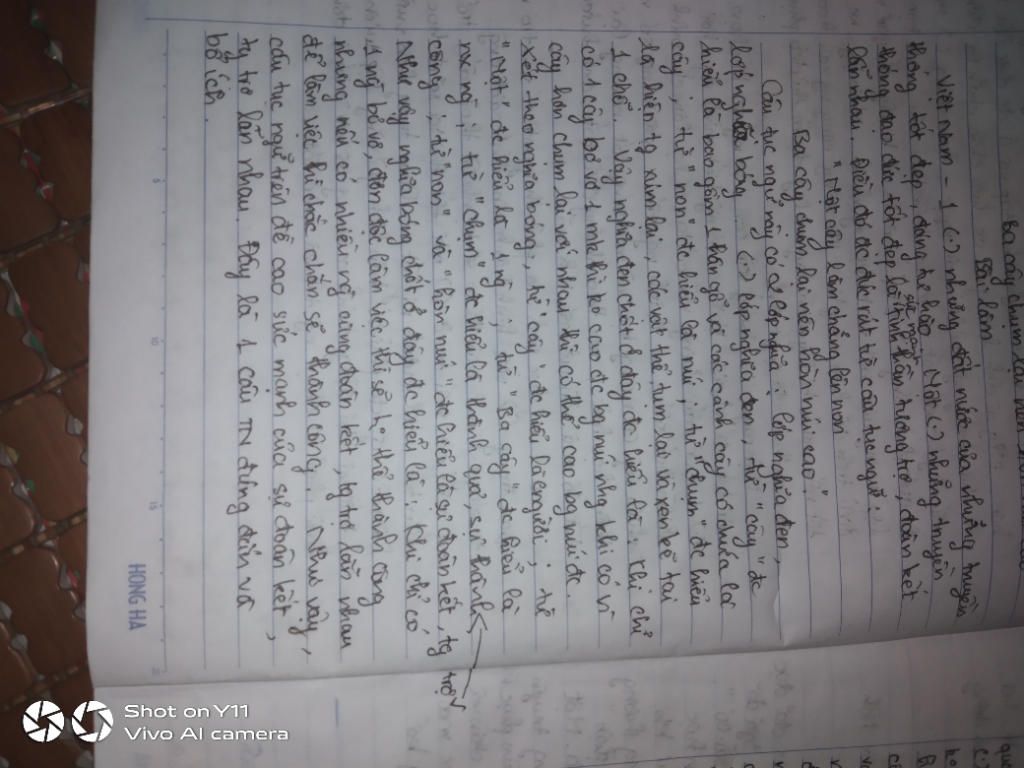 Ba cây chụm lại nên
Bài làm
Việt Nam - 1 (.) những đất nước của những truyền
thống tốt đẹp, đáng tự hào. Một (.) những truyền
thống đạo đức tốt đẹp là tinh thần tương trợ, đoàn kết
lẫn nhau. Điều đó đc đúc rút từ câu tục ngữ:
"Một cây làm chẳng lên non
Ba cây chụm lại nên hòn núi cao".
Câu tục ngữ này có 2 lớp nghĩa: lớp nghĩa đen,
lớp nghĩa bóng. (.) lớp nghĩa đen, từ "cây" đc
hiểu là bao gồm 1 thân gỗ và các cành cây có chứa lá
cây; từ "non" đc hiểu là núi; từ "chụm" đc hiểu
là hiện tg xúm lại, các vật thể tụm lại và ven bờ tại
1 chỗ. Vậy nghĩa đen chốt ở đây đc hiểu là: Khi chỉ
có 1 cây bơ vơ 1 mk thì ko cao đc bg núi nhg khi có
cây hơn chụm lại với nhau thì có thể cao bg núi đc.
Xét theo nghĩa bóng, từ "cây" đc hiểu là con người; từ
"Một" đc hiểu là 1 ng; từ "Ba cây" đc hiểu là
nx ng; từ "chụm" đc hiểu là thành quả, sự thành
công; từ "non" và "hòn núi" đc hiểu là sự đoàn kết, tg trợ
Như vậy nghĩa bóng chốt ở đây đc hiểu là: Khi chỉ có
1 ng bơ vơ, đơn độc làm việc thì sẽ thể thành công
nhưng nếu có nhiều ng cùng đoàn kết, tg trợ lẫn nhau
để làm việc thì chắc chắn sẽ thành công. Như vậy,
câu tục ngữ trên đề cao sức mạnh của sự đoàn kết,
tg trợ lẫn nhau. Đây là 1 câu TN đúng đắn và
bổ ích.
HONG HA
5
10
15
Shot on Y11
Vivo AI camera